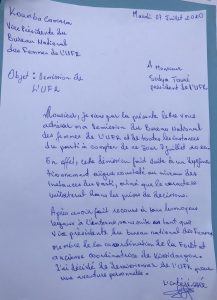 Koumba Camara
Vice Présidente du
Bureau National
des Femmes de l'UFR
Mardi 07 Juillet 2020
A Monsieur
Sidya Touré
président de l'UFR
Objet : Démission de
L'UFR
Monsieur, je viens par la présente lettre vous
adresser ma démission du Bureau National
des femmes de l'UFR et de toutes les instances
du parti à compter de ce jour 7 juillet
En effet, cette démission fait suite à un
constaté au niveau des
instances du Parti, ainsi que le caractère
unilatéral dans les prises de décisions.
Après avoir fait recours à tous
légaux à l'interne en tant que
vice présidente du bureau national des femmes
membre de la coordination de la Forêt et
ancienne coordinatrice de Kissidougou
J'ai décidé de démissionner de l'UFR pour
une aventure personnelle.